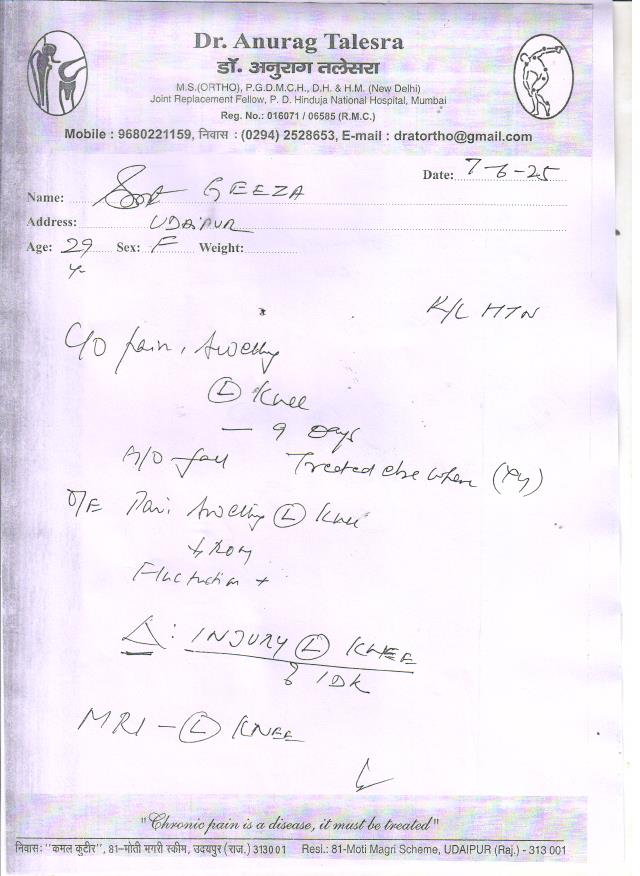 Dr. Anurag Talesra
डॉ. अनुराग तलेसरा
M.S.(ORTHO), P.G.D.M.C.H., D.H. & H.M. (New Delhi)
Joint Replacement Fellow, P. D. Hinduja National Hospital, Mumbai
Reg. No.: 016071 / 06585 (R.M.C.)
Mobile : 9680221159, निवास : (0294) 2528653, E-mail : dratortho@gmail.com
Date: 7-6-25
Name: GEEZA
Address: UDAIPUR
Age: 29 Sex: F Weight:
yr
K/C HTN
C/O pain, swelling
Ⓛ Knee
- 9 Days
H/O fall Treated else where
O/E Pain swelling Ⓛ Knee
↓ ROM
Fluctuation +
Δ : INJURY Ⓛ KNEE
IDK
MRI - Ⓛ KNEE
"Chronic pain is a disease, it must be treated"
निवास: "कमल कुटीर", 81-मोती मगरी स्कीम, उदयपुर (राज.) 313001 Resi.: 81-Moti Magri Scheme, UDAIPUR (Raj.) - 313 001